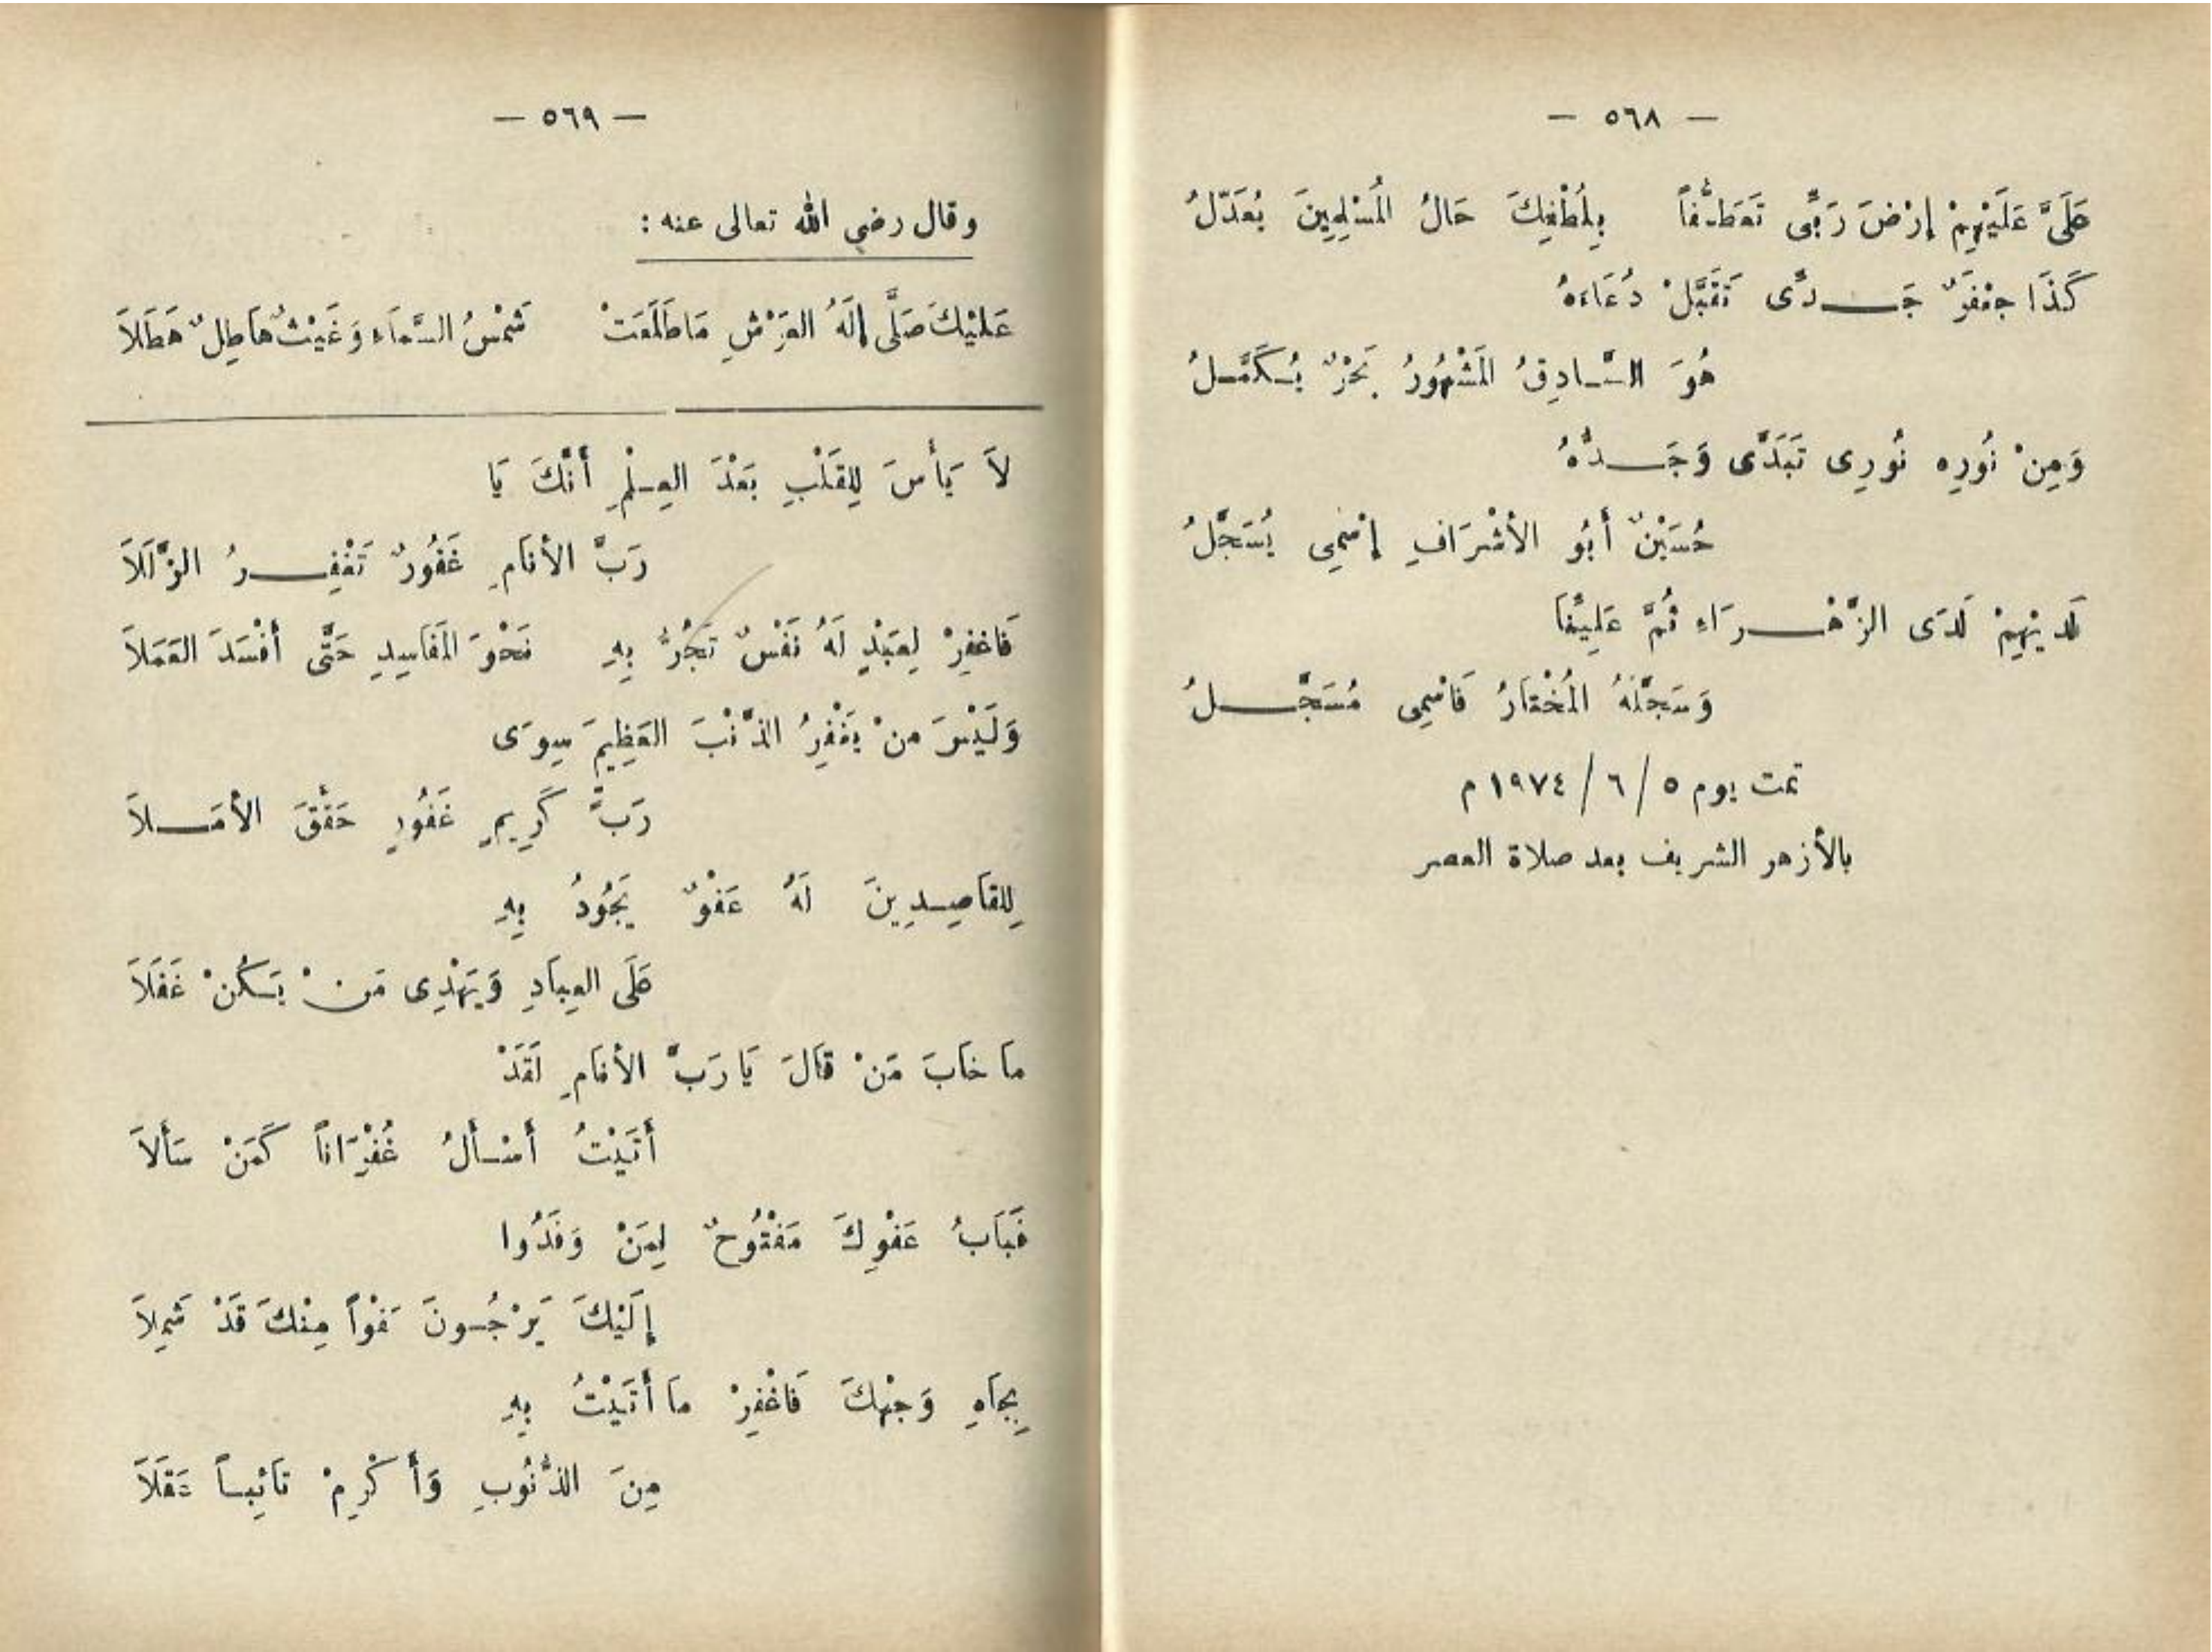 — ٥٦٨ —
عَلَىَّ عَلَيْهِمْ إِرْضَ رَبِّى تَعَطُّفاً بِلُطْفِكَ حَالُ الْمُسْلِمِينَ يُعَدّلُ
كَذَا جعْفَرٌ جَـــدِّى تَقَبَّلْ دُعَاءَهُ
هُوَ السَّـادِقُ الْمَشْهُورُ بَحْرٌ يُـكَمَّـلُ
وَمِنْ نُورِه نُورِى تَبَدَّى وَجَـــدُّهُ
حُسَيْنٌ أَبُو الأشْرَافِ إسْمِى يُسَجَّلُ
لَدَيْهِمْ لَدَى الزَّهْـــرَاءِ ثُمَّ عَلِيِّنَا
وَسَجَّلَهُ الْمُخْتَارُ فَاسْمِى مُسَجَّـــلُ
تمت يوم ٥ / ٦ / ١٩٧٤ م
بالأزهر الشريف بعد صلاة العصر
— ٥٦٩ —
وقال رضي الله تعالى عنه :
عَليْكَ صَلَّى إِلَهُ العَرْشِ مَا طَلَعَتْ شَمْسُ السَّمَاءِ وَغَيْثٌ هَاطِلٌ هَطَلاَ
لاَ يَأسَ لِلقَلْبِ بَعْدَ العِـلْمِ أَنَّكَ يَا
رَبَّ الأنَامِ غَفُورٌ تَغْفِـــرُ الزَّلَلاَ
فَاغفِرْ لِعَبْدٍ لَهُ نَفْسٌ تَجُرُّ بِهِ نَحْوَ الْمَفَاسِدِ حَتَّى أفْسَدَ العَمَلاَ
وَلَيْسَ منْ يَغْفِرُ الذَّنْبَ العَظِيمَ سِوَى
رَبٍّ كَرِيمٍ غَفُورٍ حَقَّقَ الأمَـــلاَ
لِلقَاصِـدِينَ لَهُ عَفْوٌ يَجُودُ بِهِ
عَلَى العِبَادِ وَيَهْدِى مَنْ يَـكُنْ غَفَلاَ
مَا خَابَ مَنْ قَالَ يَا رَبَّ الأنَامِ لَقَدْ
أَتَيْتُ أَسْـأَلُ غُفْرَاناً كَمَنْ سَألاَ
فَبَابُ عَفْوِكَ مَفْتُوحٌ لِمَنْ وَفَدُوا
إِلَيْكَ يَرْجُـونَ عَفْواً مِنْكَ قَدْ شَمِلاَ
بِجَاهِ وَجْهِكَ فَاغْفِرْ مَا أَتَيْتُ بِهِ
مِنَ الذُّنُوبِ وَأَكْرِمْ تَائِباً عَقَلاَ